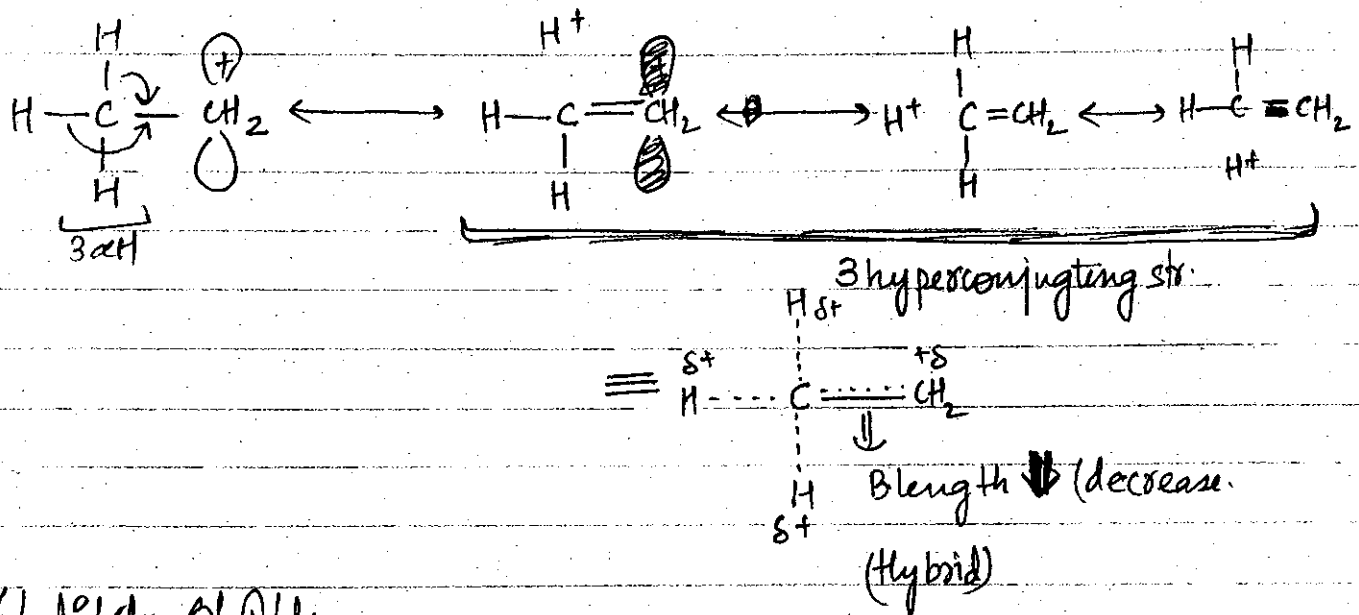 H H+ H H
H—C—CH2 ⟷ H—C=CH2 ⟷ H+ C=CH2 ⟷ H—C=CH2
H H H H+
3αH
3 hyperconjugting str.
H δ+
≡ δ+ H----C=CH2 +δ
⇓
H B length ⇓ (decrease.
δ+
(Hybrid)